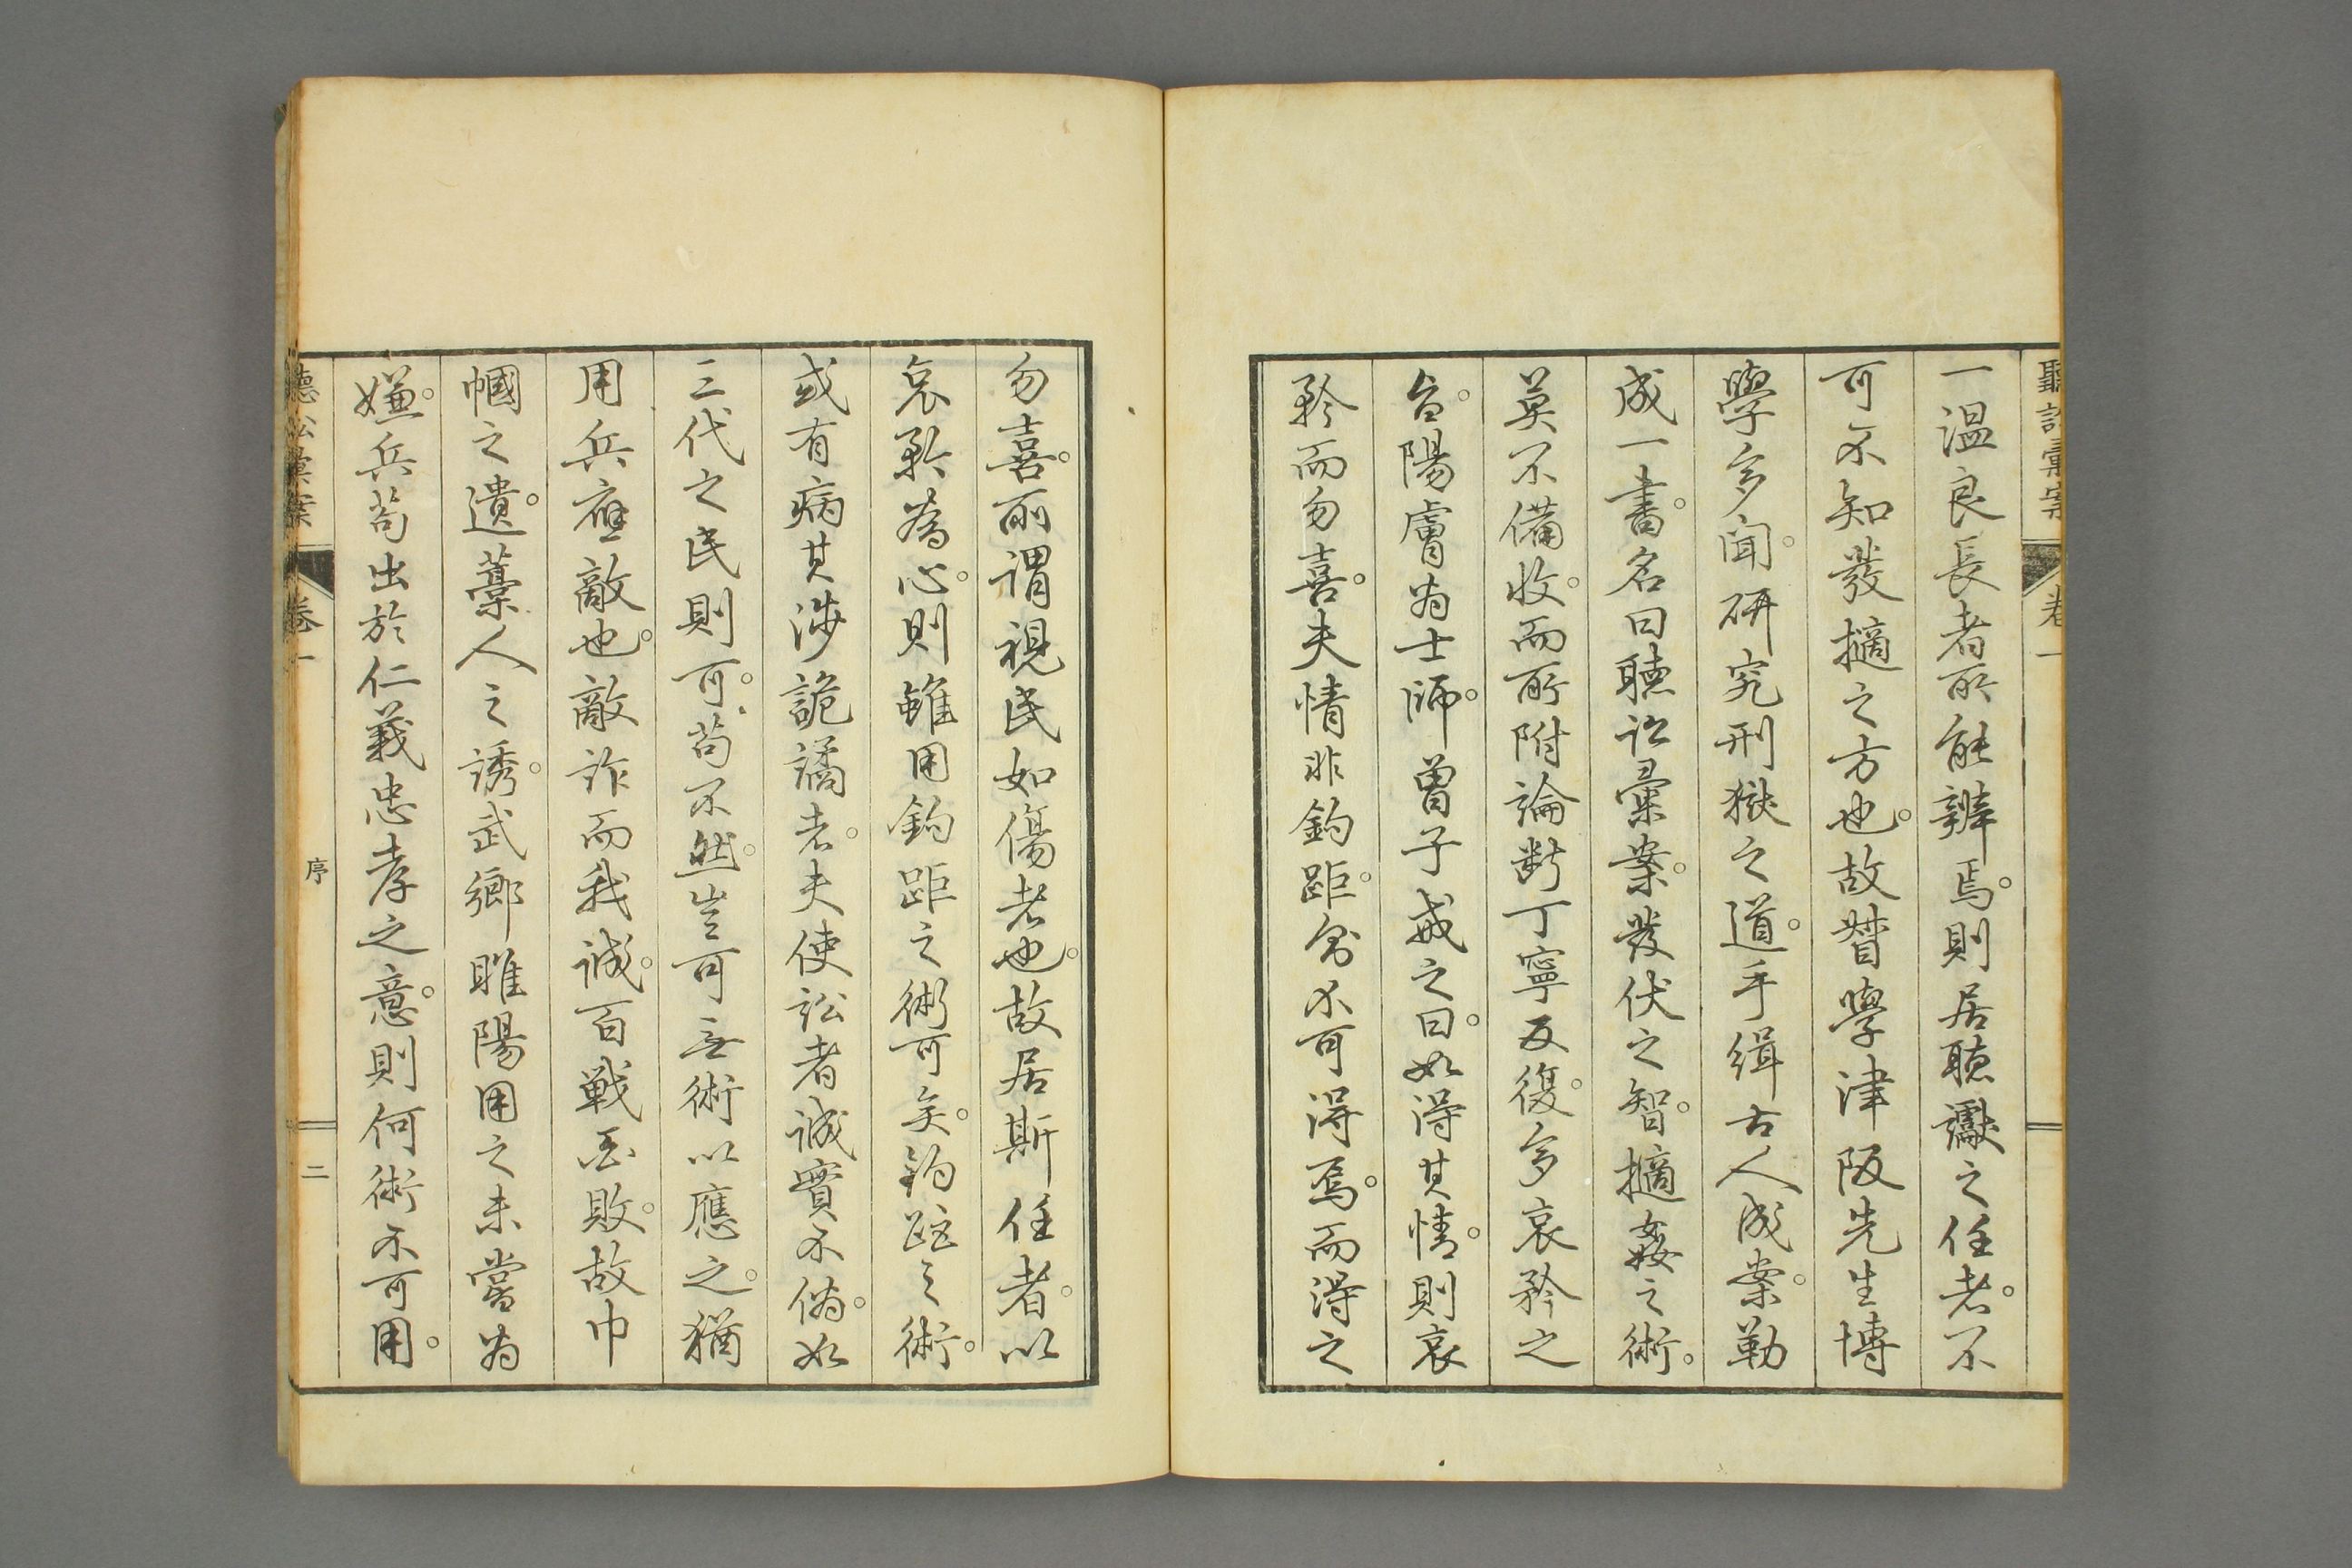 聽訟彙案 卷一
一溫良長者所能辨焉。則居聽讞之任者。不
可不知發擿之方也。故督學津阪先生博
學多聞。研究刑獄之道。手緝古人成案。勒
成一書。名曰聽訟彙案。發伏之智。擿姦之術。
莫不備收。而所附論斷丁寧反復。多哀矜之
言。陽膚為士師。曾子戒之曰。如得其情。則哀
矜而勿喜。夫情非鈎距。不可得焉。而得之
勿喜。所謂視民如傷者也。故居斯任者。以
哀矜為心。則雖用鈎距之術可矣。鈎距之術。
或有病其涉詭譎者。夫使訟者誠實不偽。如
三代之民則可。苟不然。豈可無術以應之。猶
用兵應敵也。敵詐而我誠。百戰百敗。故巾
幗之遺。藁人之誘。武鄉睢陽用之。未嘗為
嫌。兵苟出於仁義忠孝之意。則何術不可用。
聽訟彙案 卷一 序 二